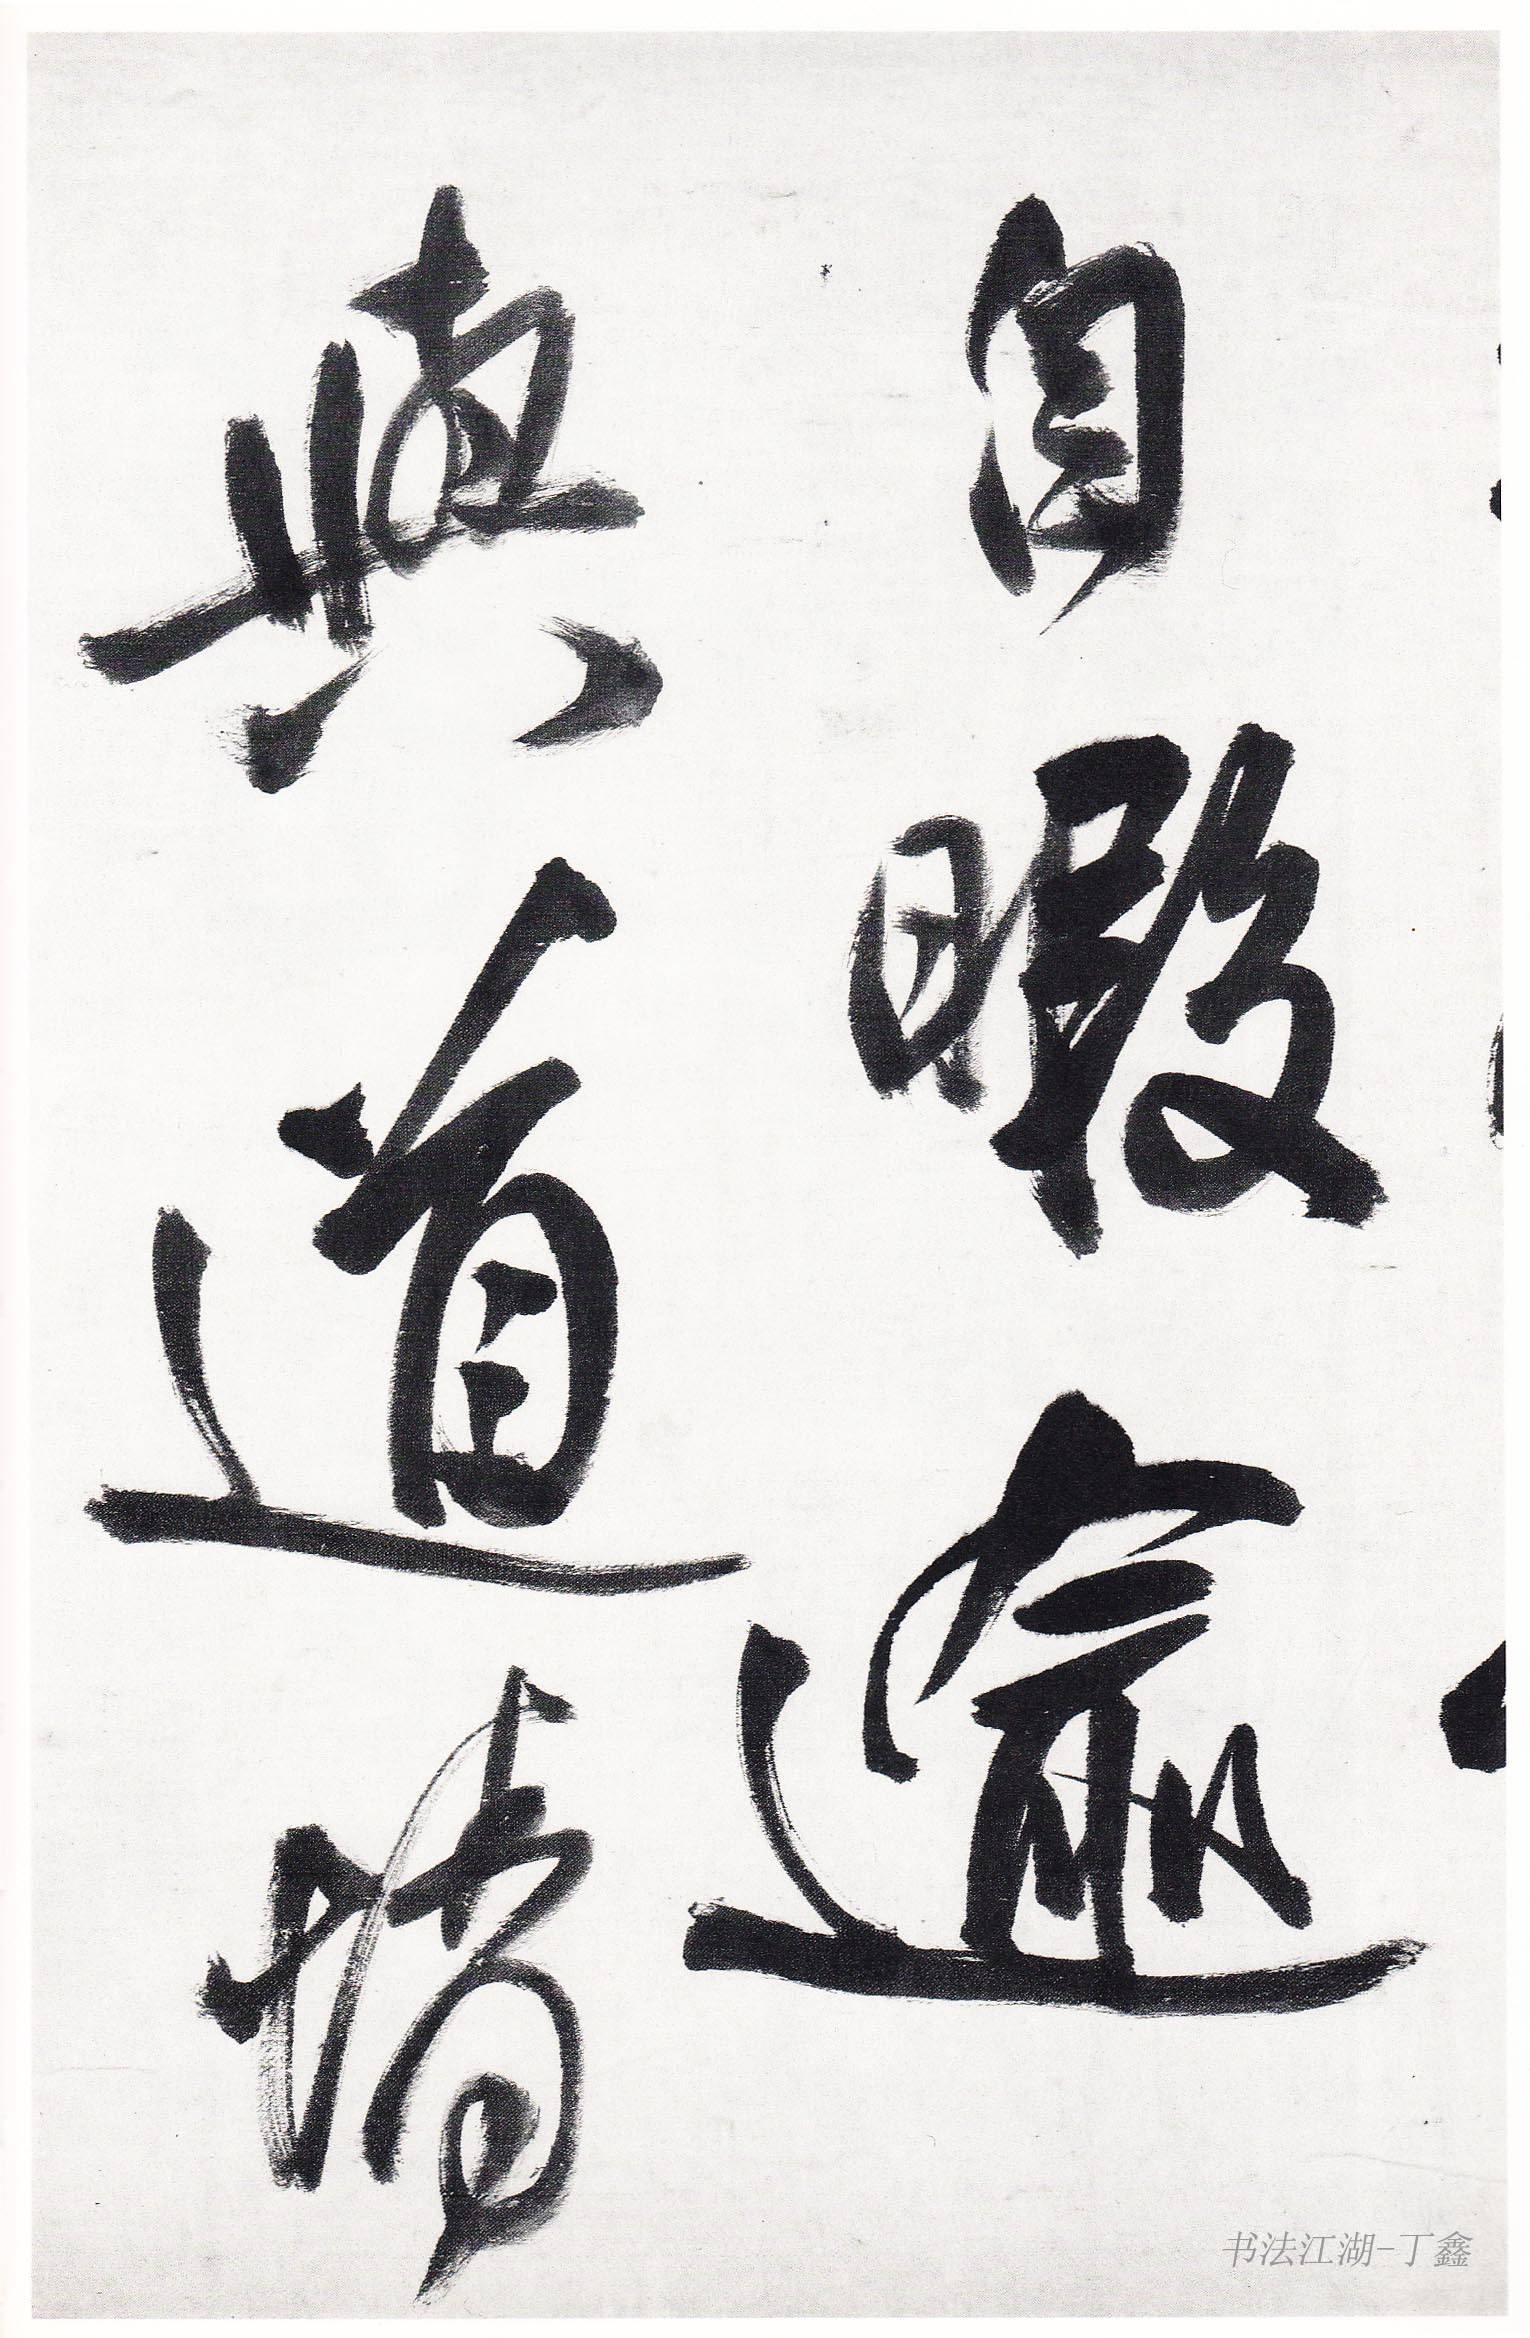 自暇逾
與道情
书法江湖-丁鑫